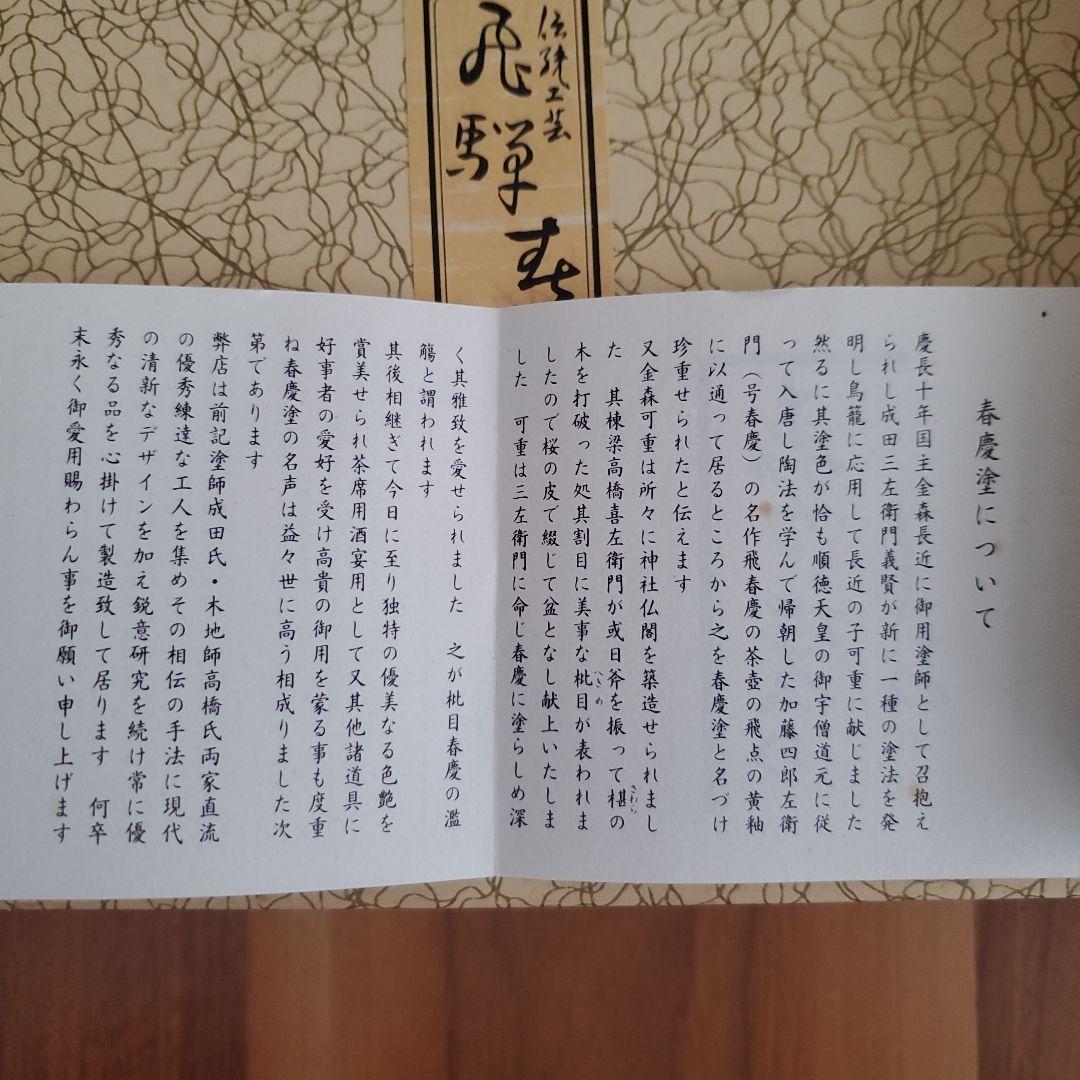 伝統工芸
飛騨春
春慶塗について
慶長十年国主金森長近に御用塗師として召抱え
られし成田三左衛門義賢が新に一種の塗法を発
明し鳥籠に応用して長近の子可重に献じました
然るに其塗色が恰も順徳天皇の御宇僧道元に従
って入唐し陶法を学んで帰朝した加藤四郎左衛
門（号春慶）の名作飛春慶の茶壺の飛点の黄釉
に以通って居るところから之を春慶塗と名づけ
珍重せられたと伝えます
又金森可重は所々に神社仏閣を築造せられまし
た　其棟梁高橋喜左衛門が或日斧を振って椹の
さわら
木を打破った処其割目に美事な枇目が表われま
へぎめ
したので桜の皮で綴じて盆となし献上いたしま
した　可重は三左衛門に命じ春慶に塗らしめ深
く其雅致を愛せられました　之が枇目春慶の濫
觴と謂われます
其後相継ぎて今日に至り独特の優美なる色艶を
賞美せられ茶席用酒宴用として又其他諸道具に
好事者の愛好を受け高貴の御用を蒙る事も度重
ね春慶塗の名声は益々世に高う相成りました次
第であります
弊店は前記塗師成田氏・木地師高橋氏両家直流
の優秀練達な工人を集めその相伝の手法に現代
の清新なデザインを加え鋭意研究を続け常に優
秀なる品を心掛けて製造致して居ります　何卒
末永く御愛用賜わらん事を御願い申し上げます